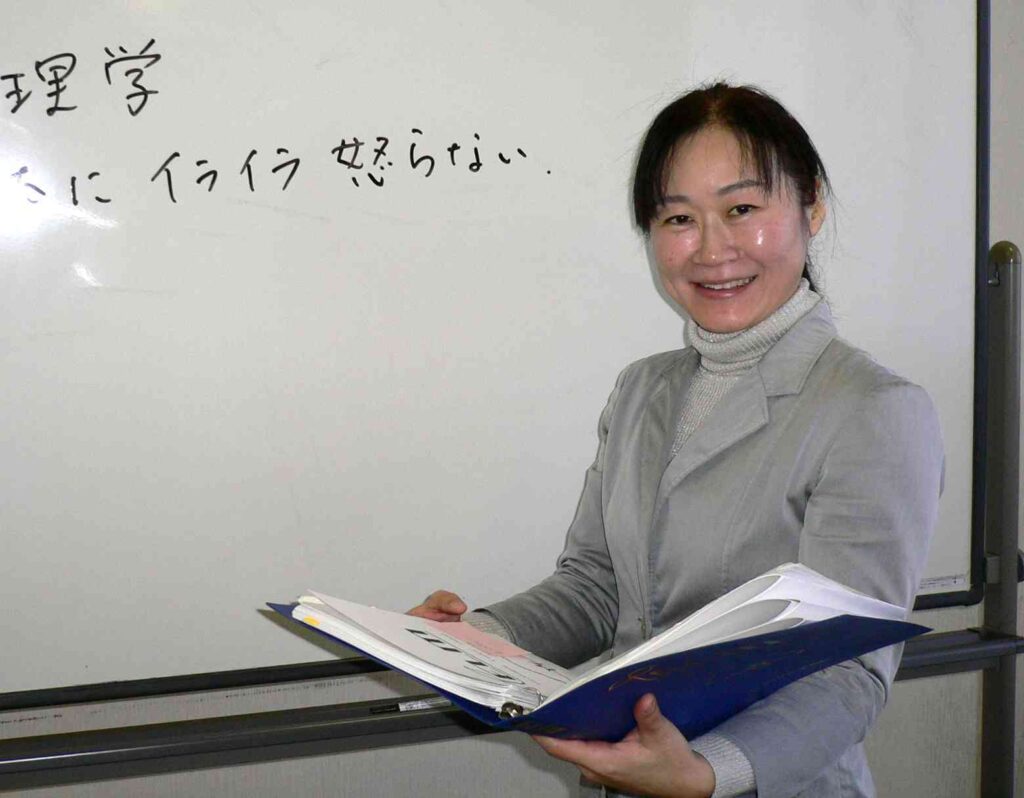 理学
に イライラ 怒らない.